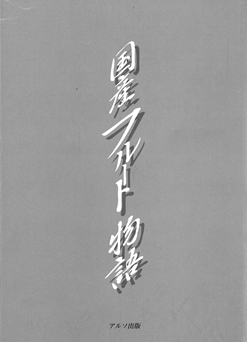 国産フルート物語
アルソ出版